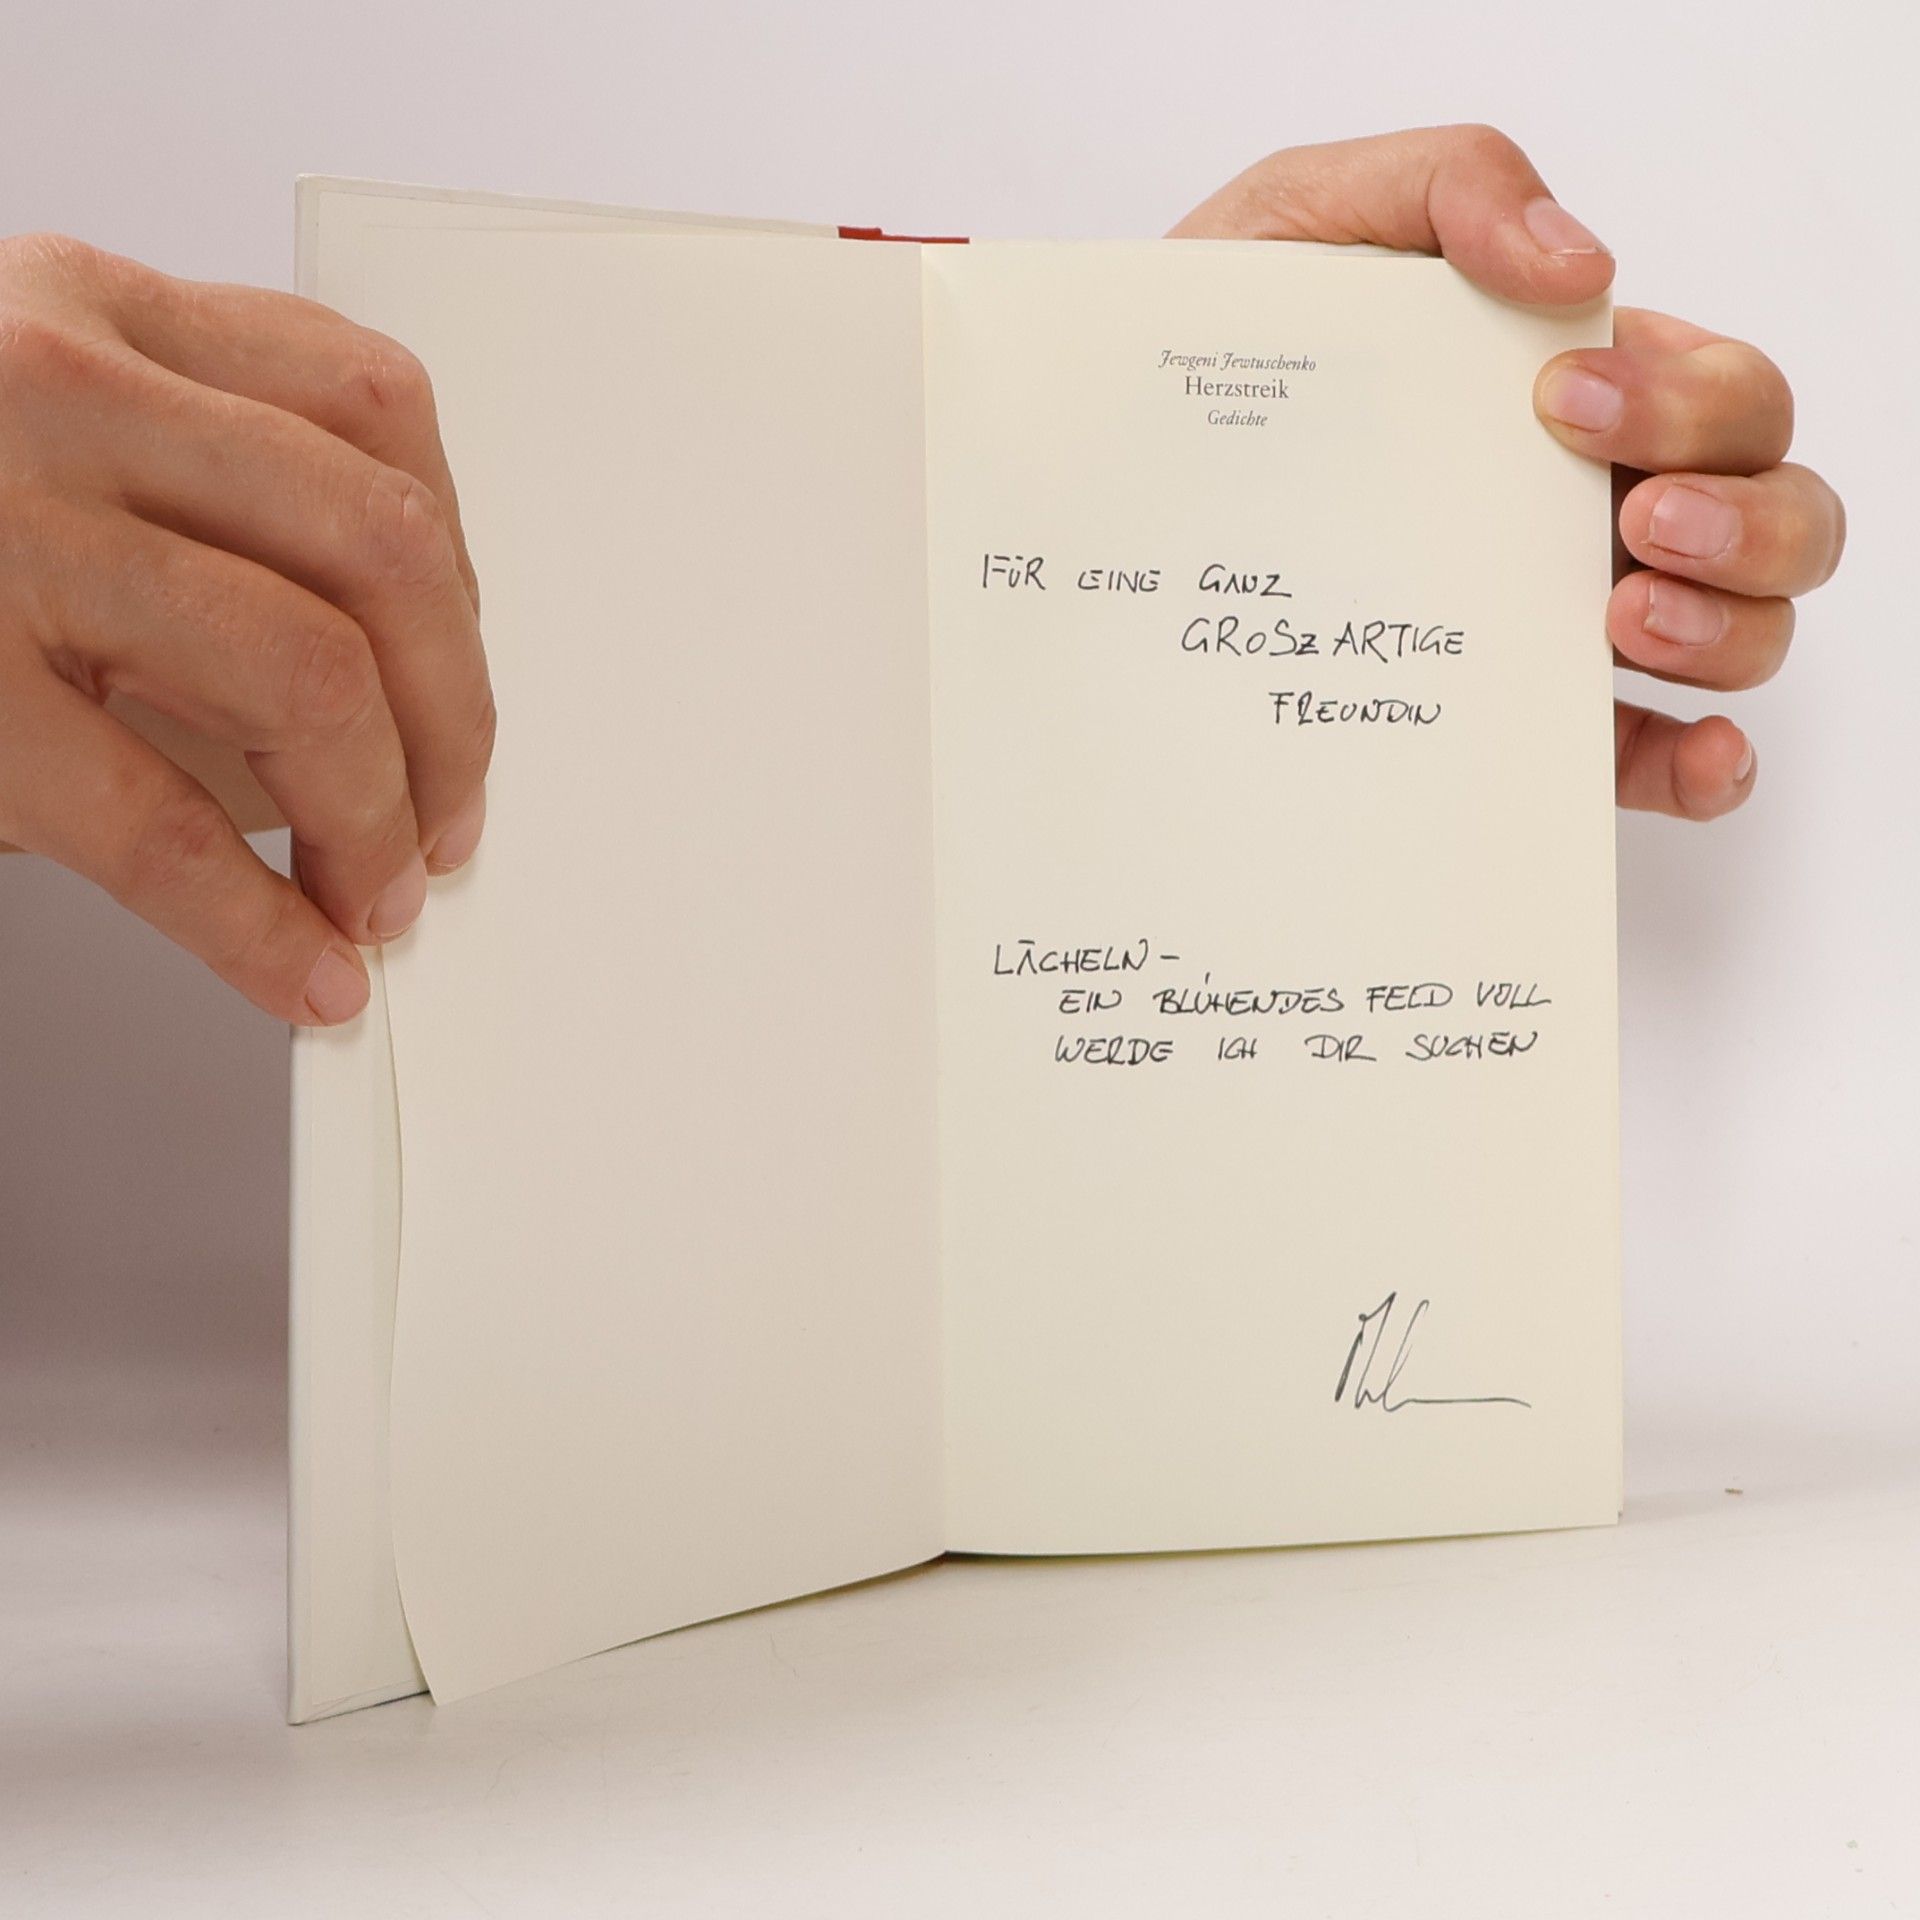 Jewgeni Jewtuschenko
Herzstreik
Gedichte
FÜR EINE GANZ
GROSZARTIGE
FREUNDIN
LÄCHELN –
EIN BLÜHENDES FELD VOLL
WERDE ICH DIR SUCHEN